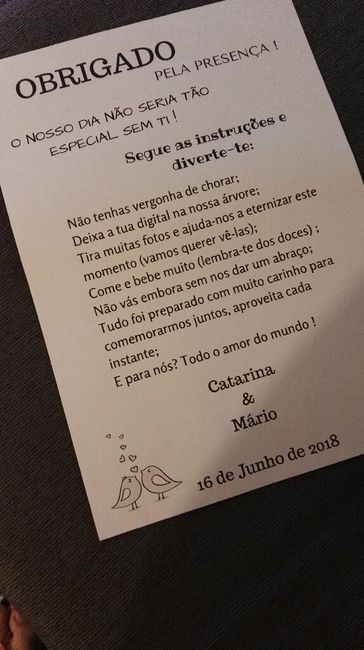 OBRIGADO
PELA PRESENÇA !
O NOSSO DIA NÃO SERIA TÃO
ESPECIAL SEM TI !
Segue as instruções e
diverte-te:
Não tenhas vergonha de chorar;
Deixa a tua digital na nossa árvore;
Tira muitas fotos e ajuda-nos a eternizar este
momento (vamos querer vê-las);
Come e bebe muito (lembra-te dos doces) ;
Não vás embora sem nos dar um abraço;
Tudo foi preparado com muito carinho para
comemorarmos juntos, aproveita cada
instante;
E para nós? Todo o amor do mundo !
Catarina
&
Mário
16 de Junho de 2018